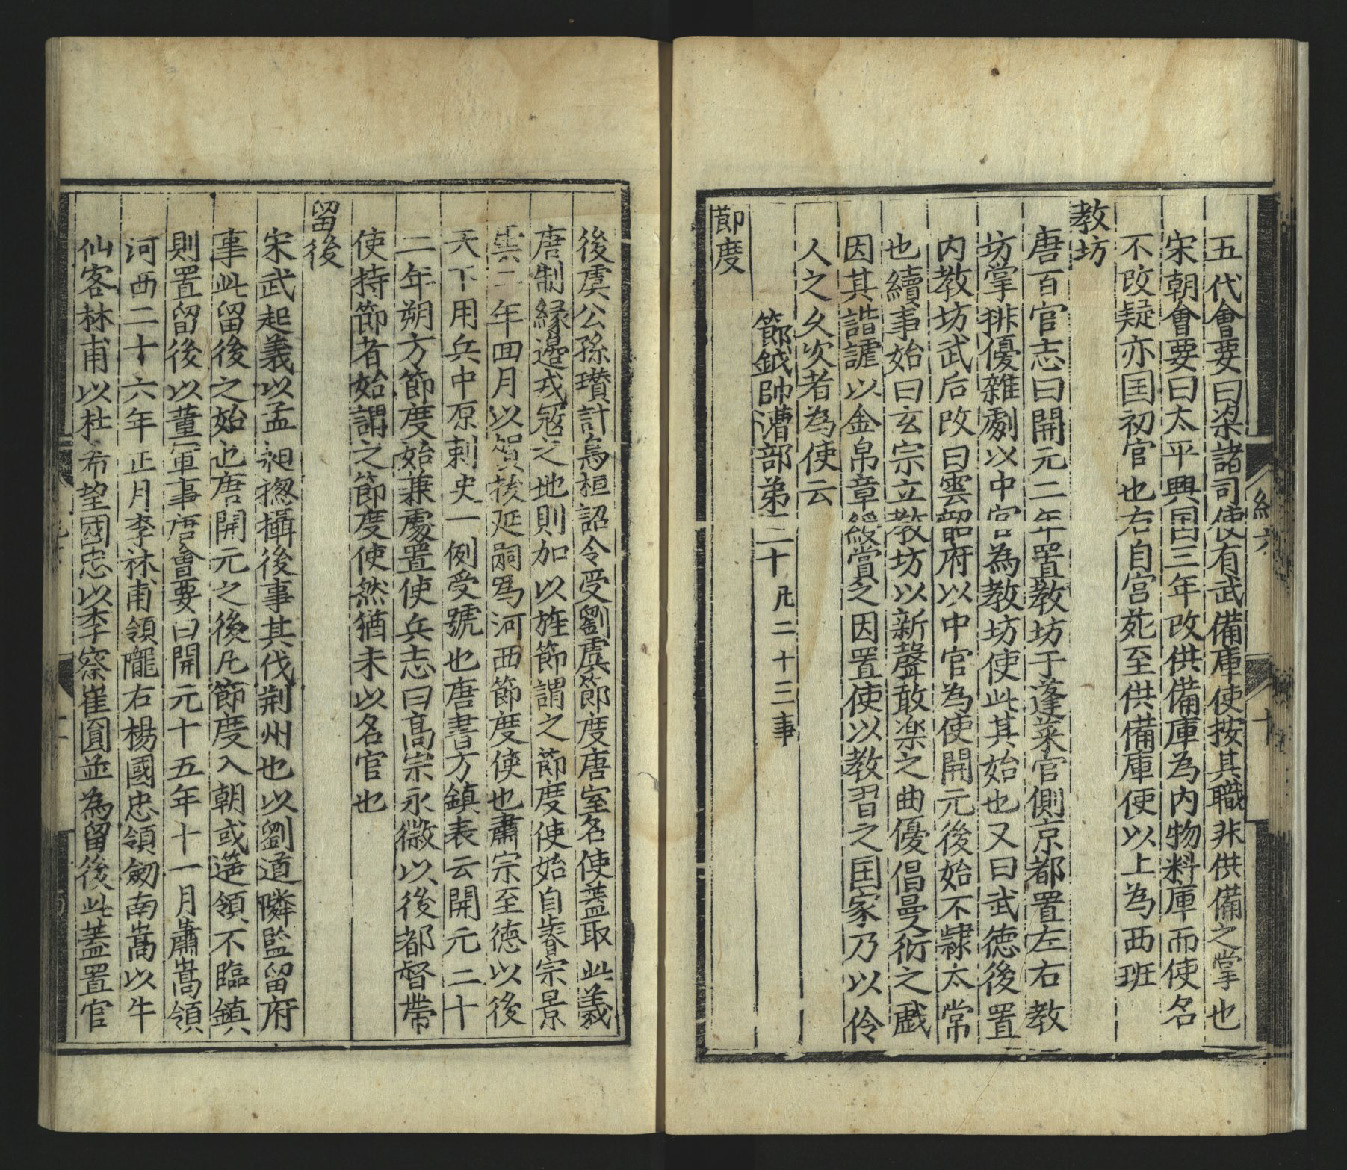 五代會要曰梁諸司使有武備庫使按其職非供備之掌也
宋朝會要曰太平興国三年改供備庫為内物料庫而使名
不改疑亦国初官也右自宫苑至供備庫使以上為西班
教坊
唐百官志曰開元二年置教坊于蓬萊宫側京都置左右教
坊掌俳優雜劇以中官為教坊使此其始也又曰武德後置
内教坊武后改曰雲韶府以中官為使開元後始不隷太常
也續事始曰玄宗立教坊以新聲散楽之曲優倡曼衍之戲
因其諧謔以金帛章綬賞之因置使以教習之国家乃以伶
人之久次者為使云
節鉞帥漕部第二十 凡二十三事
節度
後虞公孫瓚討烏桓詔令受劉虞節度唐室名使蓋取此義
唐制縁邊戎冦之地則加以旌節謂之節度使始自睿宗景
雲二年四月以賀拔延嗣爲河西節度使也肅宗至德以後
天下用兵中原刺史一例受號也唐書方鎮表云開元二十
二年朔方節度始兼處置使兵志曰高宗永徽以後都督帶
使持節者始謂之節度使然猶未以名官也
留後
宋武起義以孟昶揔攝後事其伐荆州也以劉道憐監留府
事此留後之始也唐開元之後凡節度入朝或遥領不臨鎮
則置留後以董軍事唐會要曰開元十五年十一月蕭嵩領
河西二十六年正月李林甫領隴右楊國忠領劒南嵩以牛
仙客林甫以杜希望國忠以李察崔圓並為留後此蓋置官
紀六